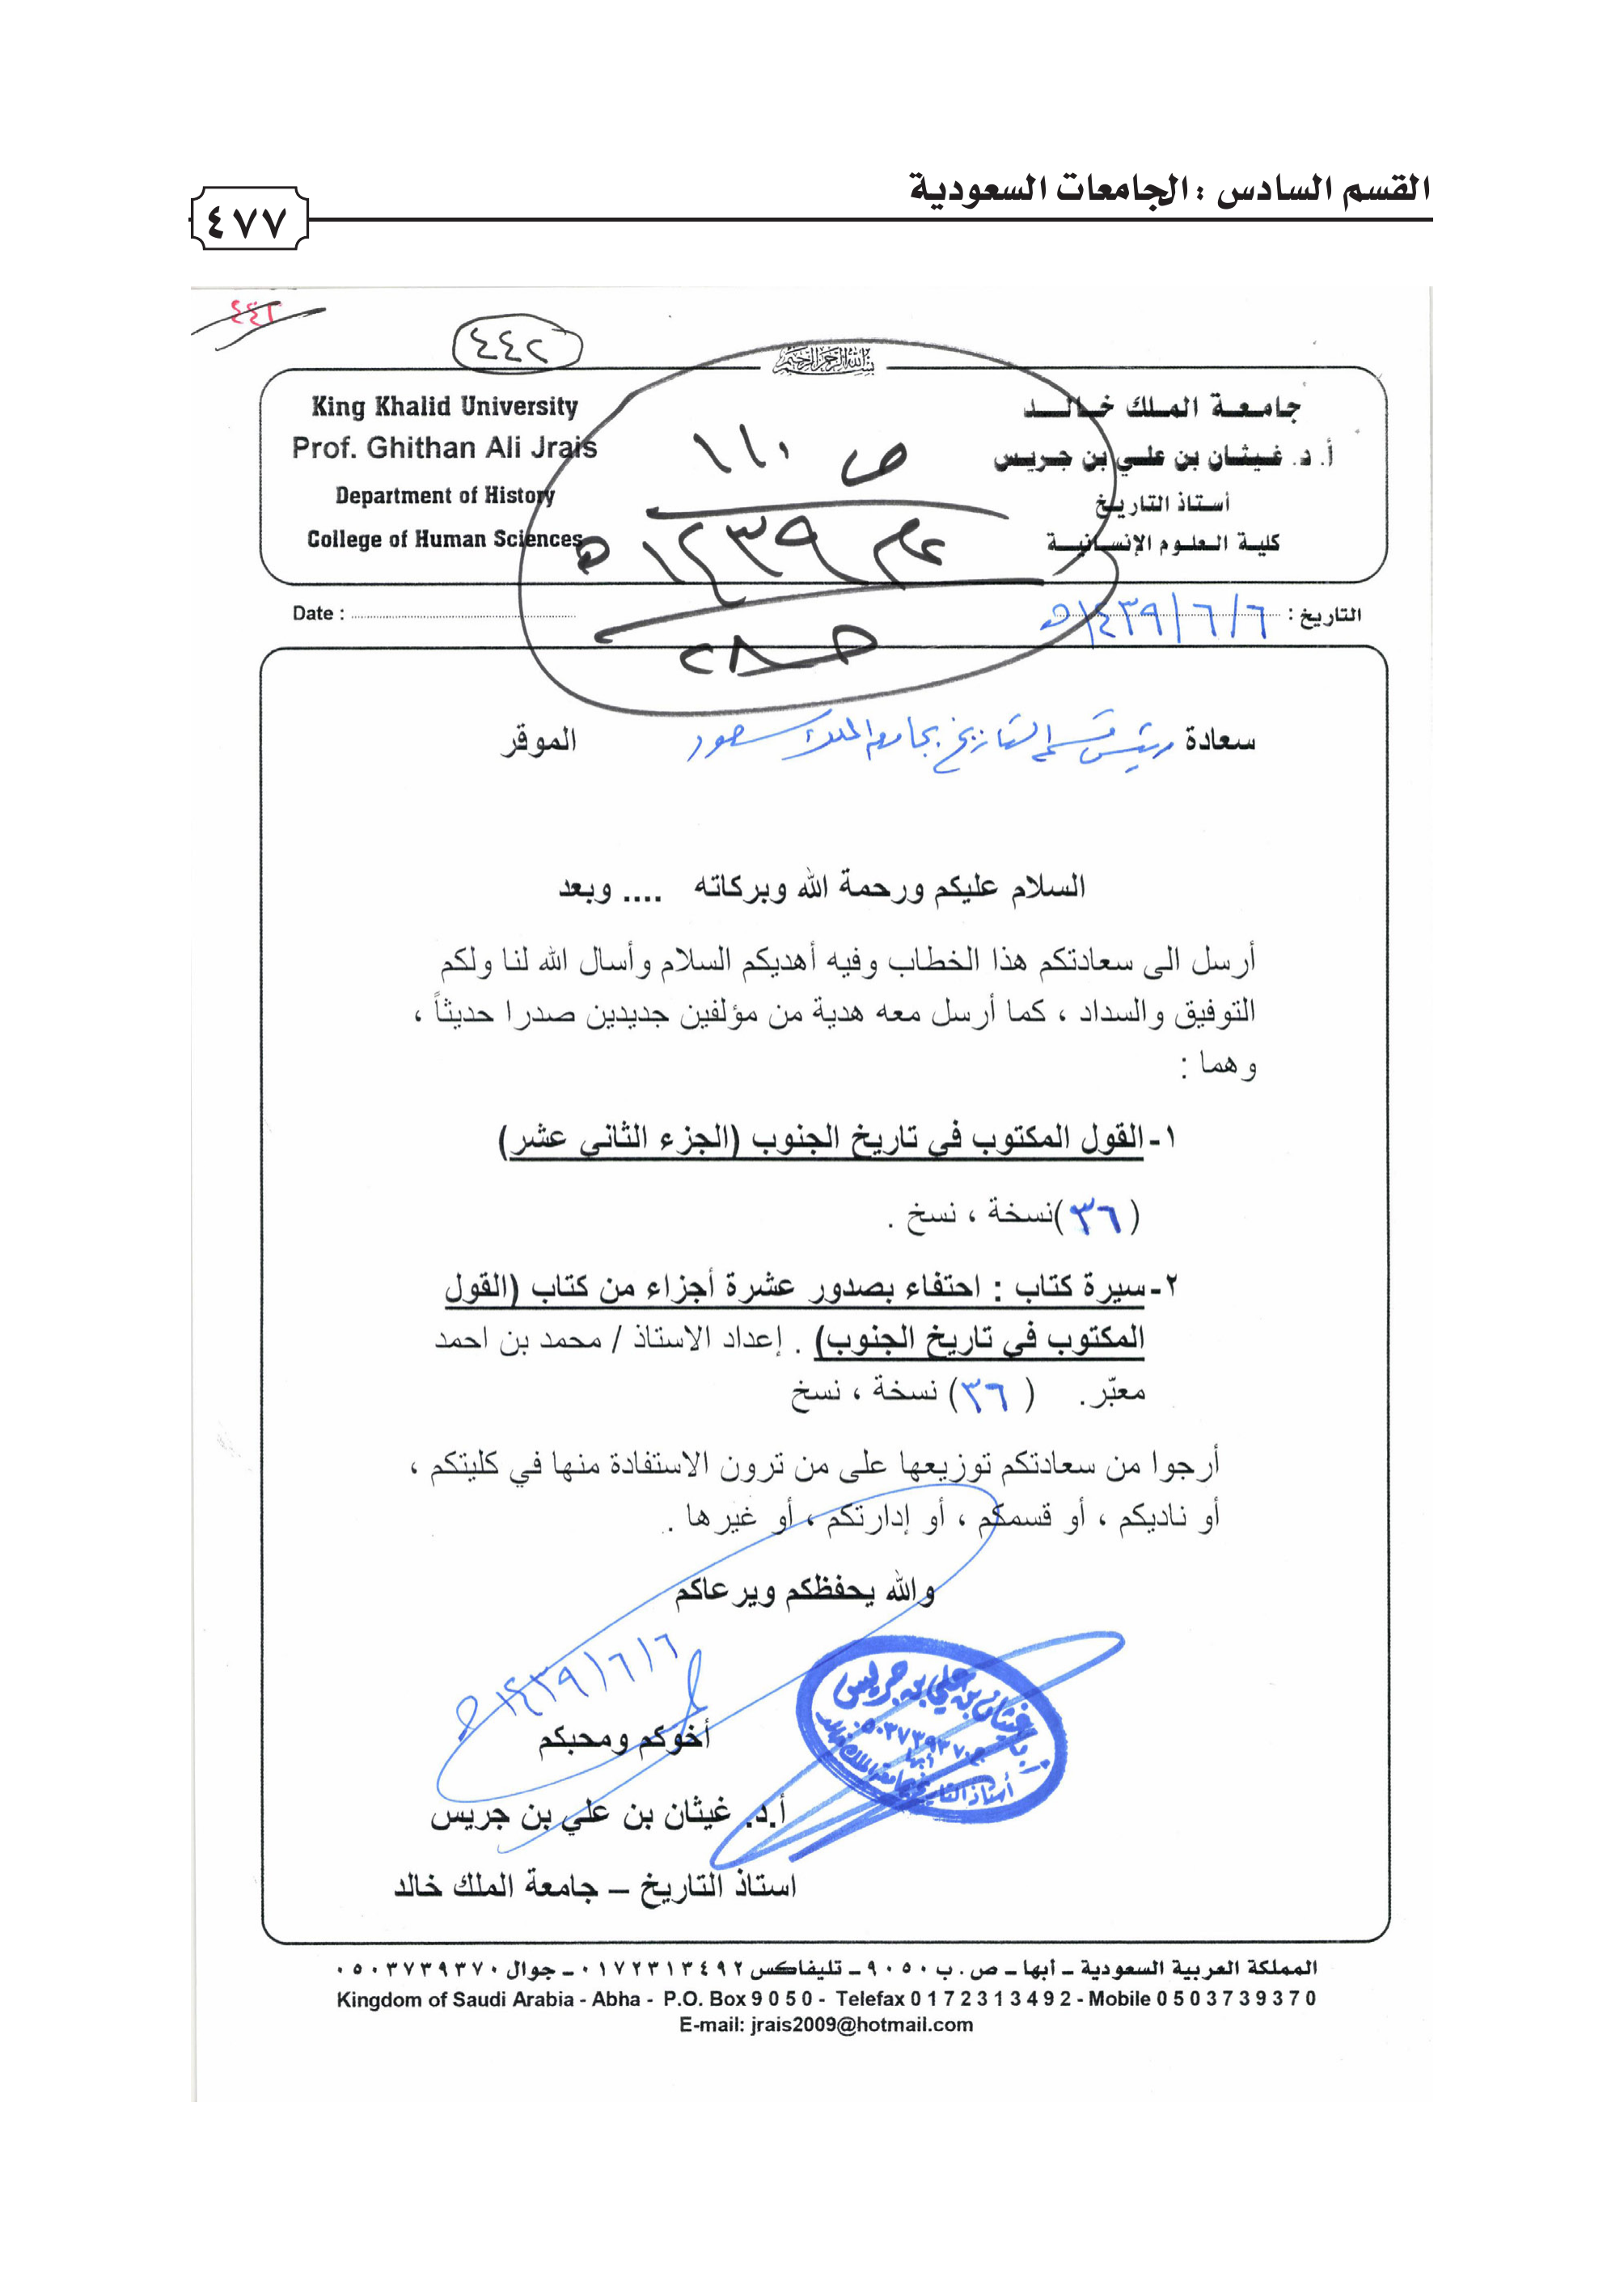 القسم السادس : الجامعات السعودية
٤٧٧
٤٤٢
٤٤٢
بسم الله الرحمن الرحيم
King Khalid University
Prof. Ghithan Ali Jrais
Department of History
College of Human Sciences
جامعة الملك خالد
أ. د. غيثان بن علي بن جريس
أستاذ التاريخ
كلية العلوم الإنسانية
ص ١١٠
عام ١٤٣٩هـ
Date :
التاريخ : ٦/٦/١٤٣٩هـ
سعادة رئيس قسم التاريخ بجامعة الملك سعود الموقر
السلام عليكم ورحمة الله وبركاته .... وبعد
أرسل الى سعادتكم هذا الخطاب وفيه أهديكم السلام وأسال الله لنا ولكم
التوفيق والسداد ، كما أرسل معه هدية من مؤلفين جديدين صدرا حديثاً ،
وهما :
١- القول المكتوب في تاريخ الجنوب (الجزء الثاني عشر)
(٣٦) نسخة ، نسخ .
٢- سيرة كتاب : احتفاء بصدور عشرة أجزاء من كتاب (القول
المكتوب في تاريخ الجنوب) . إعداد الاستاذ / محمد بن احمد
معبّر. (٣٦) نسخة ، نسخ
أرجوا من سعادتكم توزيعها على من ترون الاستفادة منها في كليتكم ،
أو ناديكم ، أو قسمكم ، أو إدارتكم ، أو غيرها .
والله يحفظكم ويرعاكم
٦/٦/١٤٣٩هـ
أخوكم ومحبكم
أ.د. غيثان بن علي بن جريس
استاذ التاريخ – جامعة الملك خالد
غيثان بن علي بن جريس
٠٥٠٣٧٣٩٣٧٠
أبها
أستاذ التاريخ بجامعة الملك خالد
المملكة العربية السعودية ـ أبها ـ ص . ب ٩٠٥٠ ـ تليفاكس ٠١٧٢٣١٣٤٩٢ ـ جوال ٠٥٠٣٧٣٩٣٧٠
Kingdom of Saudi Arabia - Abha - P.O. Box 9 0 5 0 - Telefax 0 1 7 2 3 1 3 4 9 2 - Mobile 0 5 0 3 7 3 9 3 7 0
E-mail: jrais2009@hotmail.com